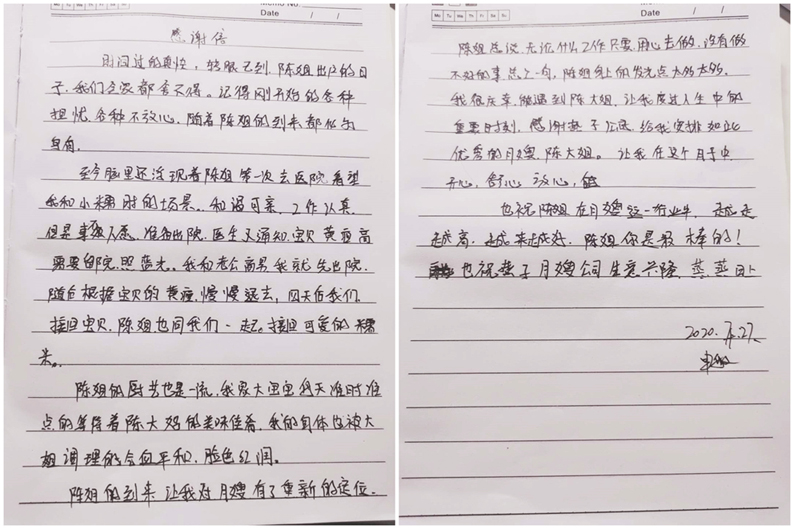 Memo No
Mo Tu We Th Fr Sa Su
Date / /
感谢信
时间过的真快，转眼已到陈姐出户的日
子，我们全家都舍不得。记得刚开始的各种
担忧，各种不放心，随着陈姐的到来都化为
乌有。
至今脑里还浮现着陈姐第一次去医院看望
我和小糯时的场景。和谒可亲，工作认真，
但是事与人愿，准备出院，医生又通知宝贝黄疸高
需要留院照蓝光。我和老公商易我就先出院，
随后根据宝贝的黄疸，慢慢退去，四天后我们
接回宝贝，陈姐也同我们一起。接回可爱的糯
米。
陈姐的厨艺也是一流，我家大宝宝每天准时准
点的等待着陈大姐的美味佳肴，我的身体也被大
姐调理的气血平和，脸色红润。
陈姐的到来让我对月嫂有了重新的定位。
Mo Tu We Th Fr Sa Su
Date / /
陈姐总说无论什么工作只要用心去做，没有做
不好的事，总之一句，陈姐身上的发光点太多太多。
我很庆幸能遇到陈大姐，让我度过人生中的
重要时刻，感谢燕子公司给我安排如此
优秀的月嫂陈大姐。让我在这个月子中
开心，舒心，放心，
也祝陈姐在月嫂这一行业中，越走
越高，越来越好，陈姐你是最棒的！
也祝燕子月嫂公司生意兴隆，蒸蒸日上
2020.7.27